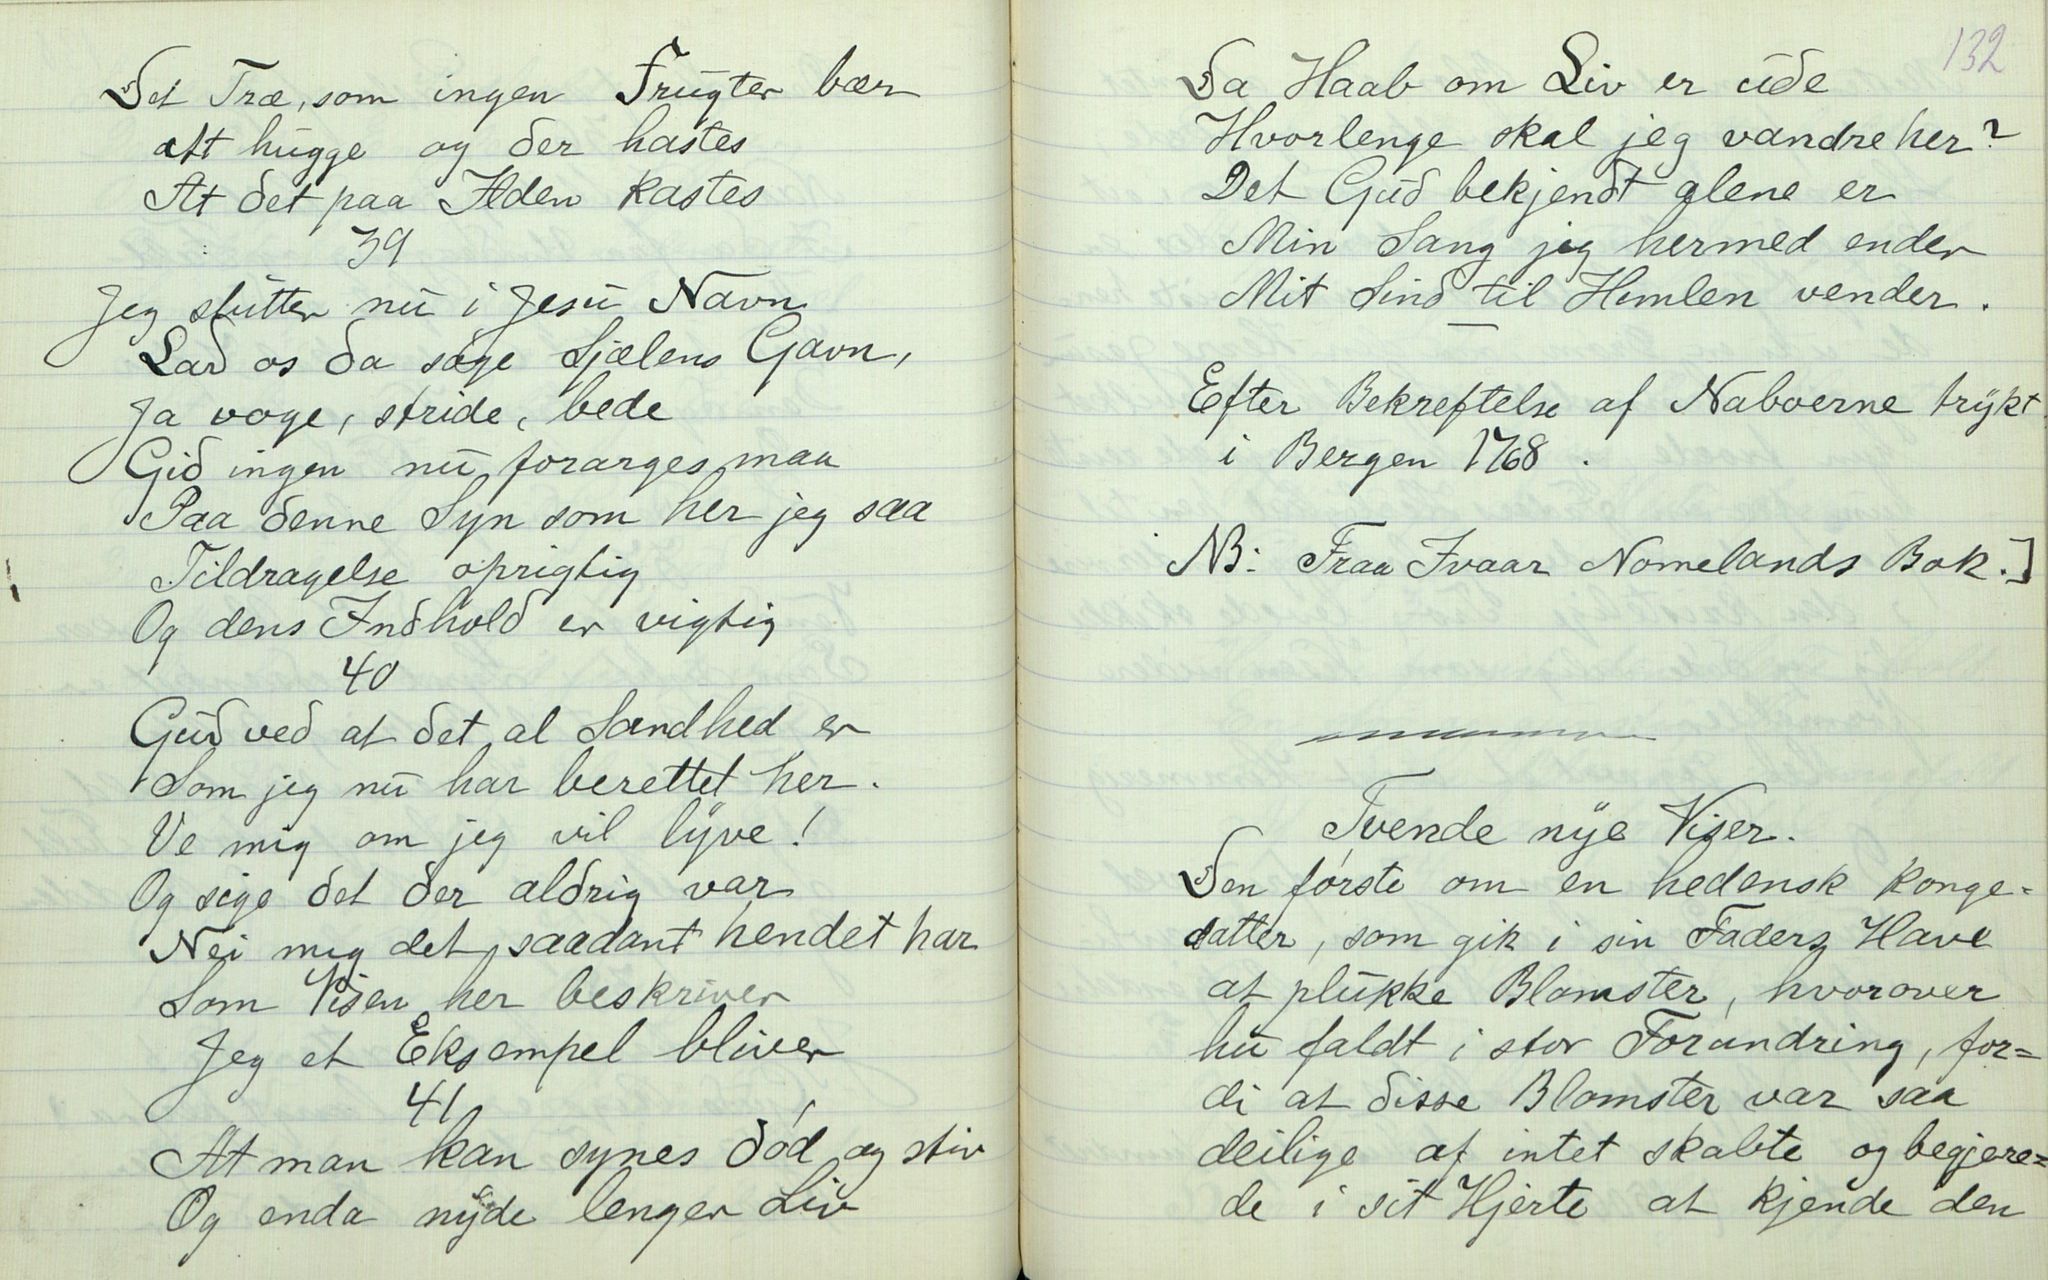 Det Træ, som ingen Frugter bær
att hugge og der hastes
At det paa Ilden kastes
39
Jeg slutter nu i Jesu Navn
Lad os da søge Sjælens Gavn,
Ja voge, stride, bede
Gid ingen nu forarges maa
Paa denne Syn som her jeg saa
Tildragelse oprigtig
Og dens Indhold er vigtig
40
Gud ved at det al Sandhed er
Som jeg nu har berettet her.
Ve mig om jeg vil lyve!
Og sige det der aldrig var
Nei mig det saadant hendet har
Som Visen her beskriver
Jeg et Eksempel bliver
41
At man kan synes død og stiv
Og enda nyde lenger Liv
132
Da Haab om Liv er ude
Hvorlenge skal jeg vandre her?
Det Gud bekjendt alene er
Min Sang jeg hermed ender
Mit Sind til Himlen vender.
Efter Bekreftelse af Naboerne trykt
i Bergen 1768.
NB: Fraa Ivaar Nomelands Bok.]
Tvende nye Viser.
Den første om en hedensk Konge=
datter, som gik i sin Faders Have
at plukke Blomster, hvorover
hu faldt i stor Forundring, for=
di at disse Blomster var saa
deilige af intet skabte og begjere=
de i sit Hjerte at kjende den